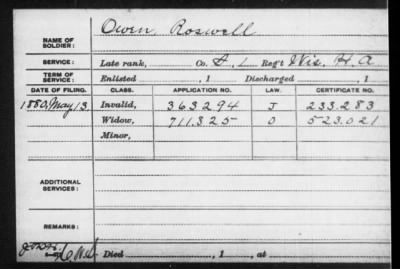 NAME OF SOLDIER: Owen, Roswell
SERVICE: Late rank, Co. F. 1. Reg't Wis. H. A
TERM OF SERVICE: Enlisted , 1 Discharged , 1
DATE OF FILING. CLASS. APPLICATION NO. LAW. CERTIFICATE NO.
1880, May 13. Invalid, 363.294 J 233.283
Widow, 711.325 O 523.021
Minor,
ADDITIONAL SERVICES:
REMARKS:
Died , 1 , at